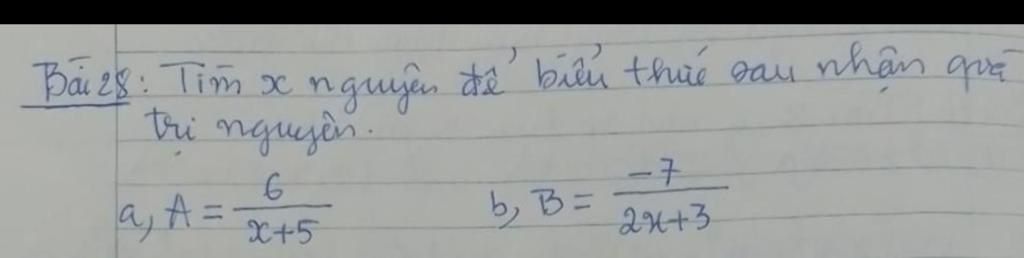 Bài 28: Tìm x nguyên để biểu thức sau nhận giá
trị nguyên.
a, A = 6/(x+5) b, B = -7/(2x+3)